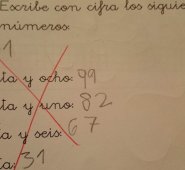 Escribe con cifra los siguie
números:
1
ta y ocho: 99
ta y uno: 82
a y seis: 67
ta: 31